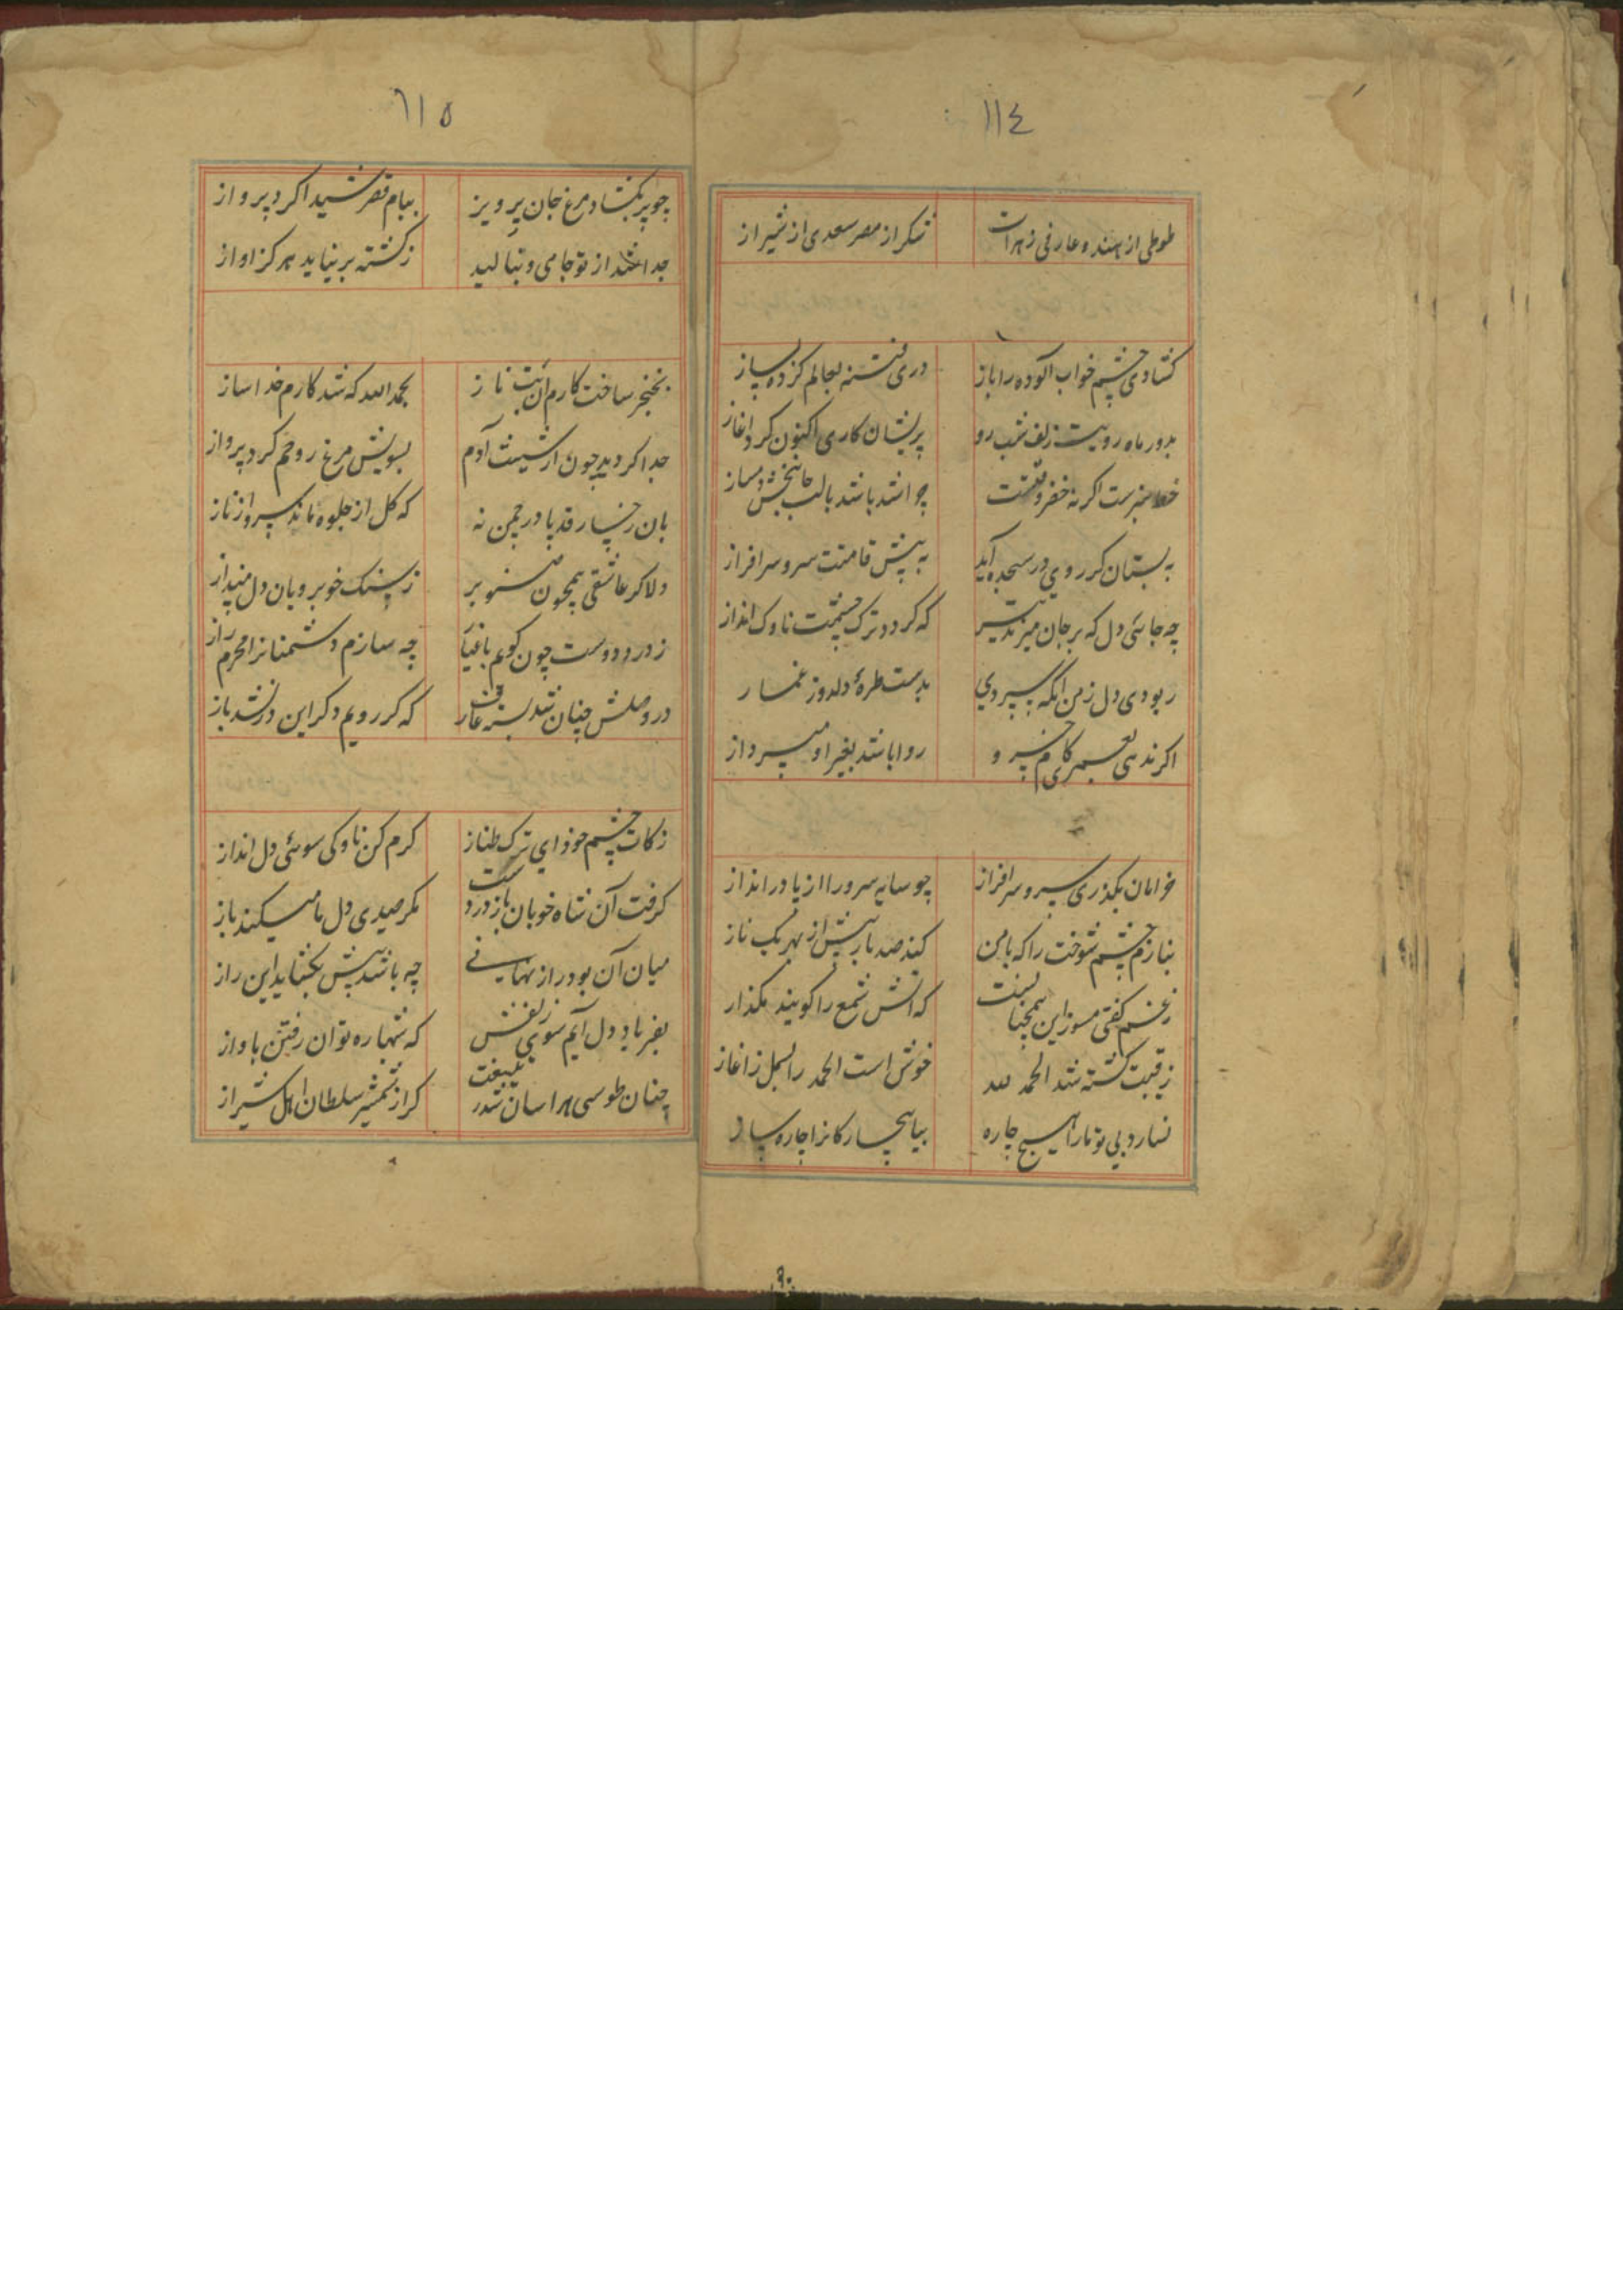 ١١٤
طوطی از هند و عارفی ز هرات شکر از مصر سعدی از شیراز
کشادی چشم خواب آلوده را باز دری فتنه بعالم کرده باز
بدور ماه رویت زلف شب رو پریشان کاری اکنون کرد اغاز
خط سبزست اکر نه خضر وقتست چرا شد باشد بالب جانبخش دمساز
به بستان کر روی در سجده آید به پیش قامتت سرو سرافراز
چه جائی دل که بر جان میزند تیر که کردد ترک چشمت ناوک انداز
ربودی دل ز من انکه سپردی بدست طرهٔ دلدوز غماز
اکر ندهی خسرو روا باشد بغیر او مپرداز
خرامان بکذری سرو سرافراز چو سایه سرو را از پا در انداز
بنازم چشم شوخت را که با من کند صد بار بیش از بهر یک ناز
ز غم کفتی مسوز این همچنانست که اتش شمع را کویند مکداز
رقیبت کشته شد الحمد لله خوش است الحمد را بسمل ز اغاز
ندارد بی تو ما را هیچ چاره بیا بیچارکانرا چاره ساز
١١٥
چو پر بکشاد مرغ جان پرویز ببام قصر شیدا کرد پرواز
جدا شد از تو جامی و ننالید ز کشته بر نیاید هرکز اواز
بخنجر ساخت کارم آن بت ناز بحمد الله که شد کارم خدا ساز
جدا کردید چون از شستت آدم بسویش مرغ روحم کرد پرواز
بان رخسار قد پا در چمن نه که کل از جلوه ماند سرو از ناز
دلا کر عاشقی همچون صنوبر ز سنک خوبرویان دل مپنداز
ز درد دوست چون کویم چه سازم دشمنانرا محرم راز
در وصلش چنان شد بسته عارف که کر رویم دکر این در نشد باز
زکات چشم خود ای ترک طناز کرم کن ناوکی سوئی دل انداز
کرفت آن شاه خوبان باز در دست مکر صیدی دل ما میکند باز
میان آن بود راز نهانی چه باشد پیش بکشاید این راز
بفریاد دل آیم سوی زلفش که شبها ره توان رفتن باواز
چنان طوسی هراسان شد ز تیغت کز از شمشیر سلطان اهل شیراز
٩٠